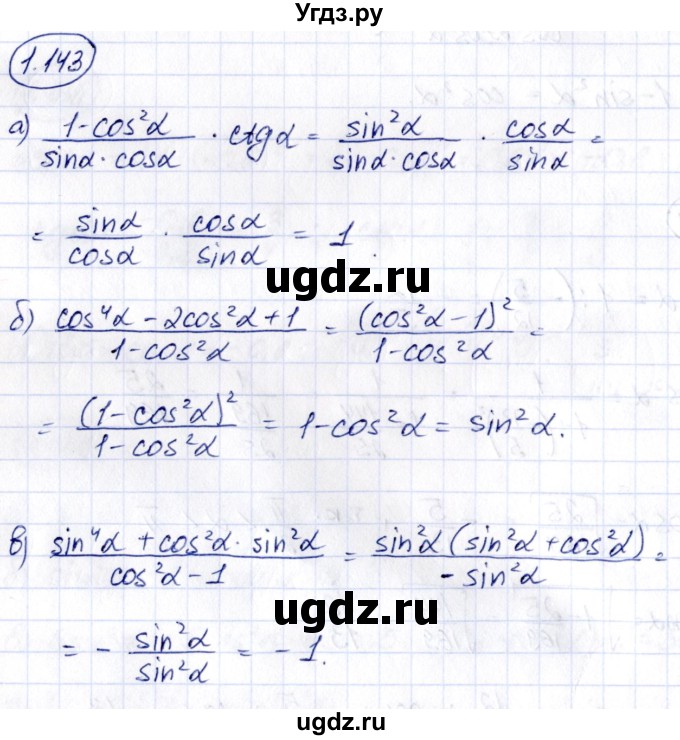 Угдз.ру
1.143
а) (1-cos²α)/(sinα·cosα) · ctgα = sin²α/(sinα·cosα) · cosα/sinα =
= sinα/cosα · cosα/sinα = 1.
ugdz.ru
б) (cos⁴α - 2cos²α + 1)/(1-cos²α) = (cos²α - 1)²/(1-cos²α) =
= (1-cos²α)²/(1-cos²α) = 1-cos²α = sin²α.
в) (sin⁴α + cos²α · sin²α)/(cos²α - 1) = sin²α(sin²α + cos²α)/(-sin²α) =
ugdz.ru
= - sin²α/sin²α = -1.
ugdz.ru